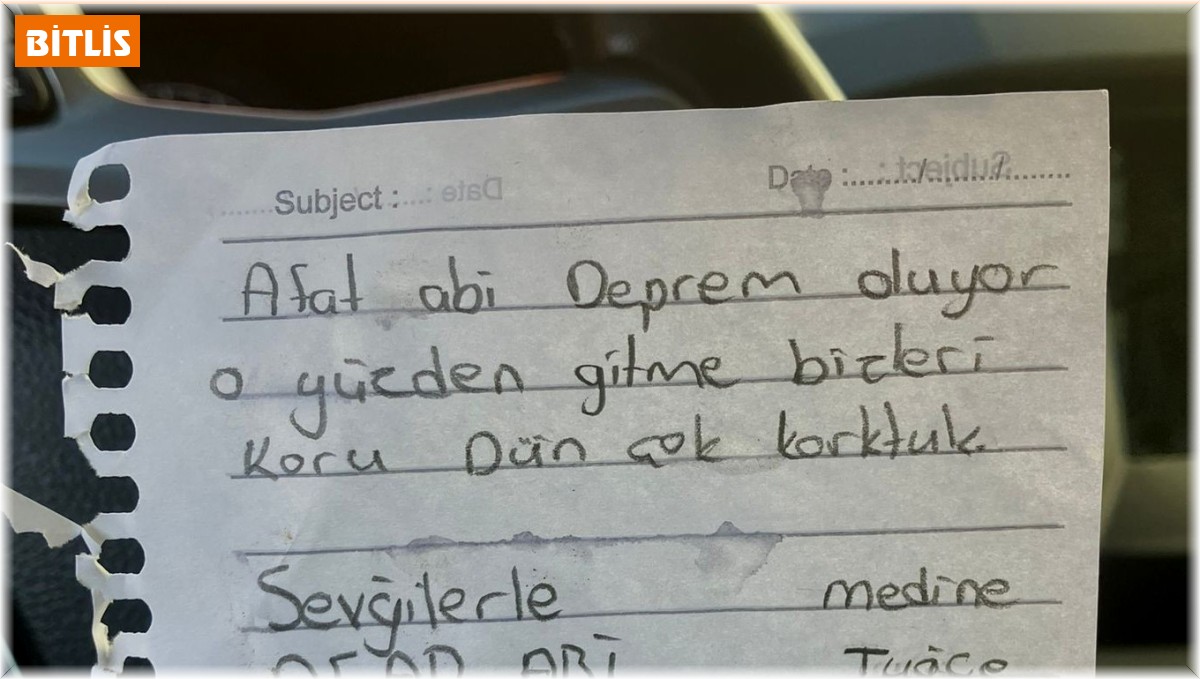 BİTLİS
Subject : Date :....../....../............
Afat abi Deprem oluyor
o yüzden gitme bizleri
Koru Dün çok korktuk.
Sevgilerle medine
AFAD ABİ